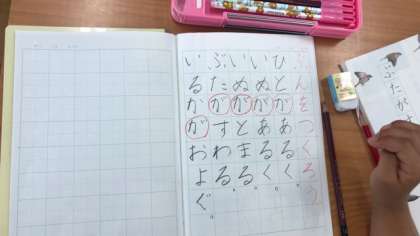 ぶんをつくろう
ひとがあるく。
いぬがあるく。
いぬがとまる。
ぶたがすわる。
いるかがおよぐ。
ぶたがす